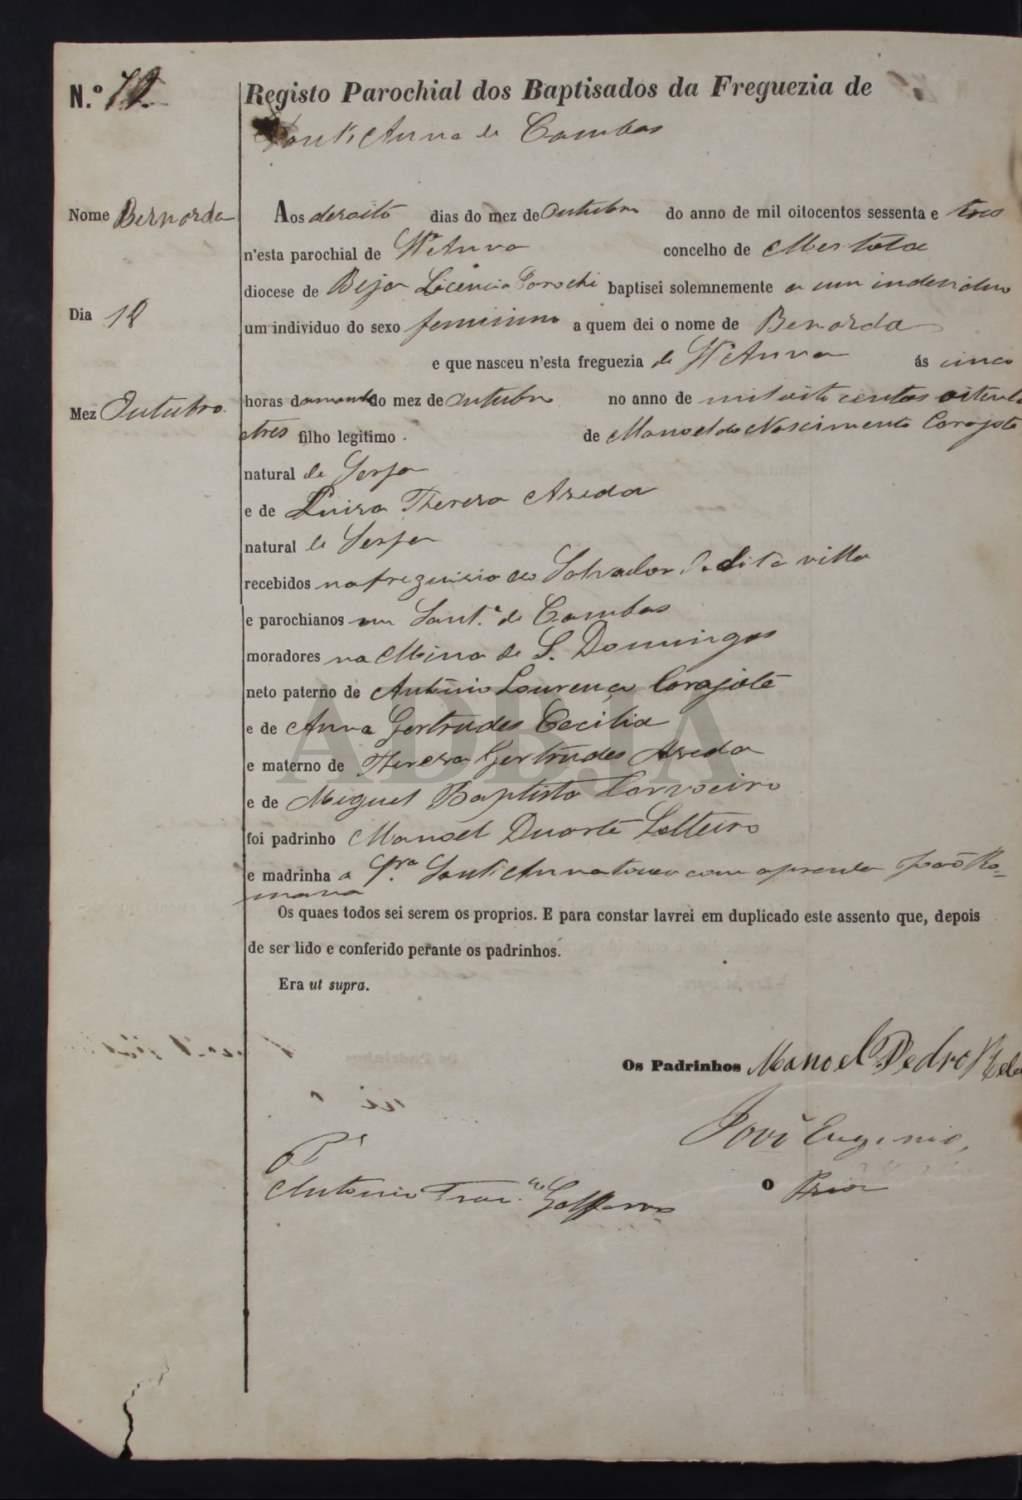 N.º 72
Registo Parochial dos Baptisados da Freguezia de
Sant'Anna de Cambas
Nome Bernarda
Aos dezoito dias do mez de Outubro do anno de mil oitocentos sessenta e tres
n'esta parochial de St.ª Anna concelho de Mertola
diocese de Beja Licencia Parochi baptisei solemnemente a um individuo
Dia 18
um individuo do sexo feminino a quem dei o nome de Bernarda
e que nasceu n'esta freguezia de St.ª Anna ás cinco
Mez Outubro
horas da manhã do mez de Outubro no anno de mil oito centos oitenta
e tres filho legitimo de Manoel do Nascimento Corajote
natural de Serpa
e de Luiza Thereza Azeda
natural de Serpa
recebidos na freguisia do Salvador da dita villa
e parochianos em Sant.ª de Cambas
moradores na Mina de S. Domingos
neto paterno de Antonio Lourenço Corajote
e de Anna Gertrudes Cecilia
e materno de Thereza Gertrudes Azeda
e de Miguel Baptista Carvoeiro
foi padrinho Manoel Duarte Solteiro
e madrinha a Sr.ª Sant'Anna tocou com a prenda João Ro=
mana
Os quaes todos sei serem os proprios. E para constar lavrei em duplicado este assento que, depois
de ser lido e conferido perante os padrinhos.
Era ut supra.
Os Padrinhos Manoel Pedro
José Eugenio
O Prior
P.e
Antonio Fran.co
ADBJA